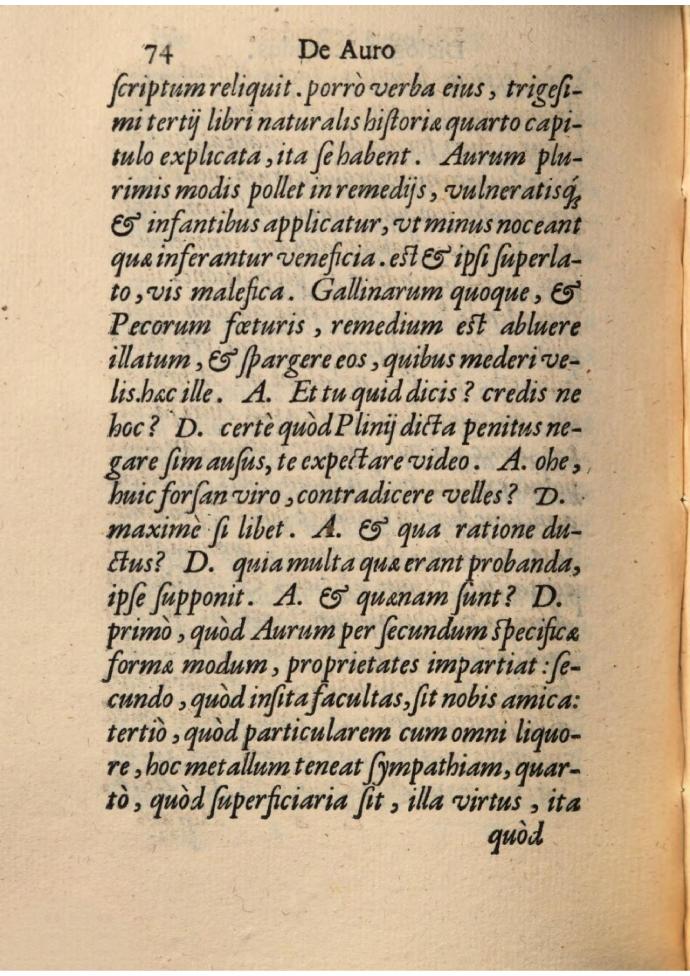 74 De Auro
ſcriptum reliquit. porrò verba eius, trigeſi-
mi tertij libri naturalis hiſtoriæ quarto capi-
tulo explicata, ita ſe habent. Aurum plu-
rimis modis pollet in remedijs, vulneratisq́;
& infantibus applicatur, vt minus noceant
quæ inferantur veneficia. eſt & ipſi ſuperla-
to, vis malefica. Gallinarum quoque, &
Pecorum fœturis, remedium eſt abluere
illatum, & ſpargere eos, quibus mederi ve-
lis. hæc ille. A. Et tu quid dicis? credis ne
hoc? D. certè quòd Plinij dicta penitus ne-
gare ſim auſus, te expectare video. A. ohe,
huic forſan viro, contradicere velles? D.
maximè ſi libet. A. & qua ratione du-
ctus? D. quia multa quæ erant probanda,
ipſe ſupponit. A. & quænam ſunt? D.
primò, quòd Aurum per ſecundum ſpecificæ
formæ modum, proprietates impartiat: ſe-
cundo, quòd inſita facultas, ſit nobis amica:
tertiò, quòd particularem cum omni liquo-
re, hoc metallum teneat ſympathiam, quar-
tò, quòd ſuperficiaria ſit, illa virtus, ita
quòd